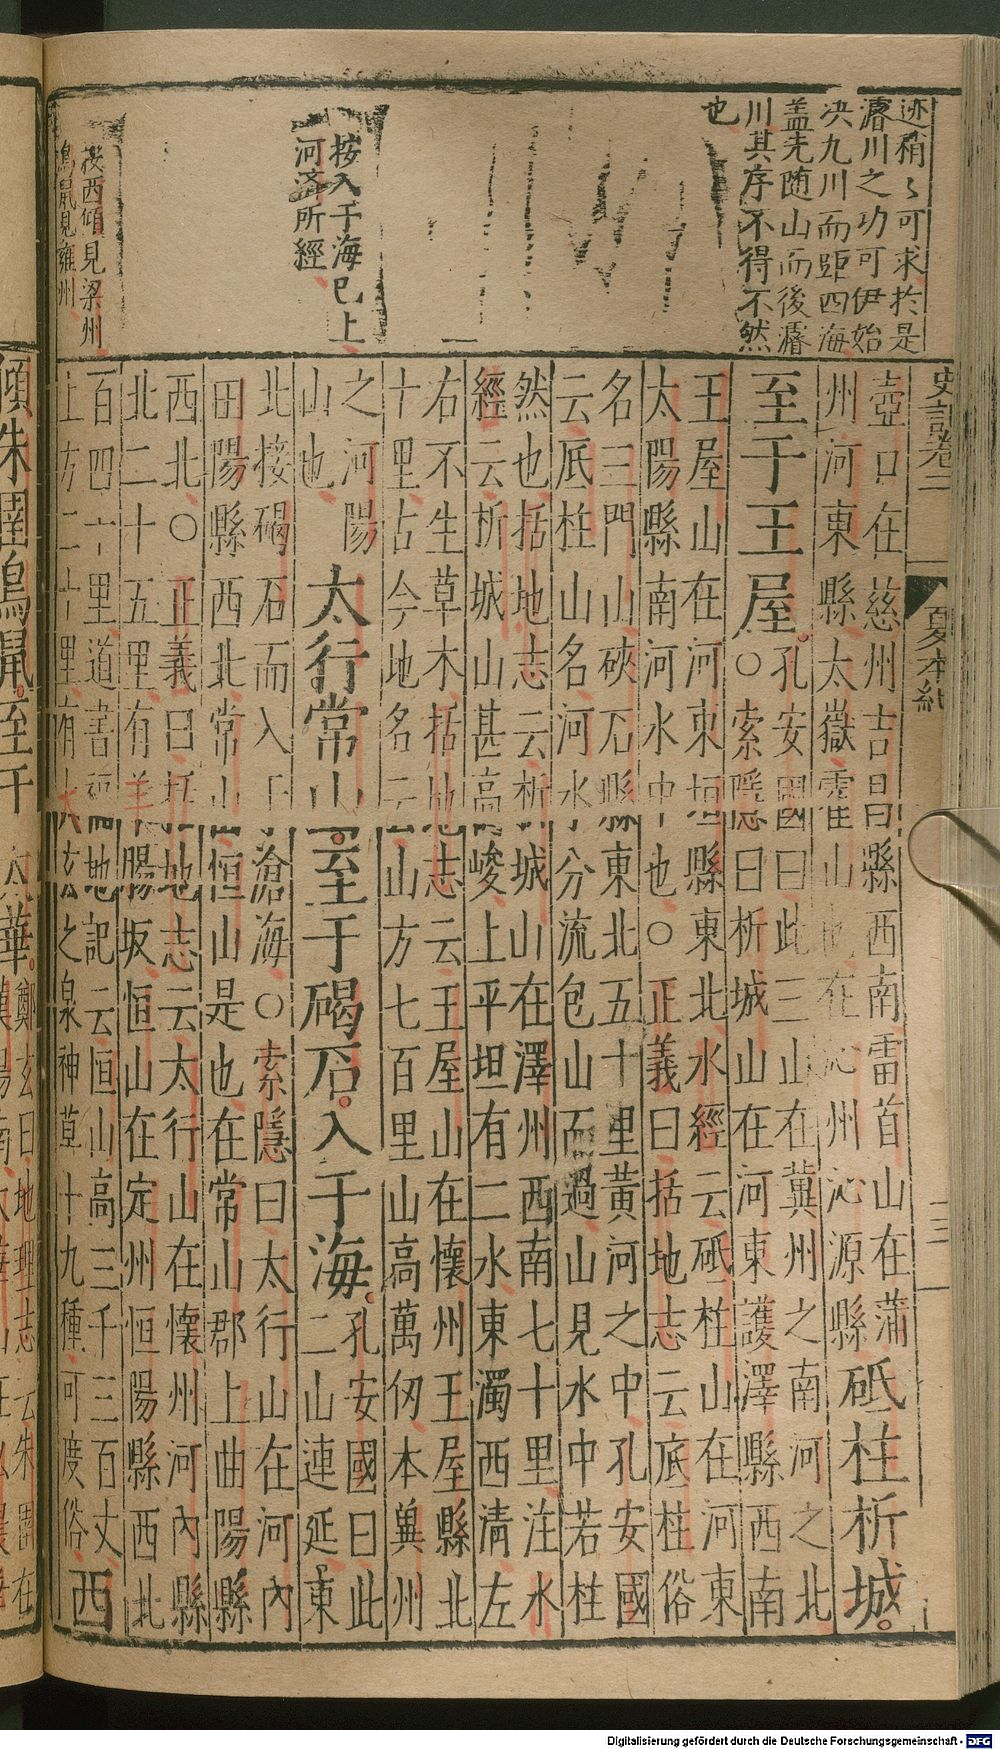 迹稍〻可求於是
濬川之功可伊始
决九川而距四海
蓋先随山而後濬
川其序不得不然
也
按入于海已上
河济所經
按西傾見梁州
鳥鼠見雍州
史記卷二
夏本紀
十三
壺口在慈州吉昌縣西南雷首山在蒲
州河東縣太嶽霍山也在沁州沁源縣
砥柱析城。
至于王屋。
孔安國曰此三山在冀州之南河之北
○索隱曰析城山在河東護澤縣西南
王屋山在河東垣縣東北水經云砥柱山在河東
太陽縣南河水中也○正義曰括地志云底柱俗
名三門山硤石縣東北五十里黃河之中孔安國
云厎柱山名河水分流包山而過山見水中若柱
然也括地志云析城山在澤州西南七十里注水
經云析城山甚高峻上平坦有二水東濁西清左
右不生草木括地志云王屋山在懷州王屋縣北
十里占今地名云山方七百里山高萬仞本兾州
之河陽
山也
太行常山。至于碣石。入于海。
孔安國曰此
二山連延東
北接碣石而入于滄海○索隱曰太行山在河內
田陽縣西北常山恒山是也在常山郡上曲陽縣
西北○正義曰括地志云太行山在懷州河內縣
北二十五里有羊腸坂恒山在定州恒陽縣西北
百四十里道書福地記云恒山高三千三百丈
上方二十里有太玄之泉神草十九種可度俗
西
傾朱圉鳥鼠。至于太華。
鄭玄曰地理志云朱圉在
Digitalisierung gefördert durch die Deutsche Forschungsgemeinschaft - DFG